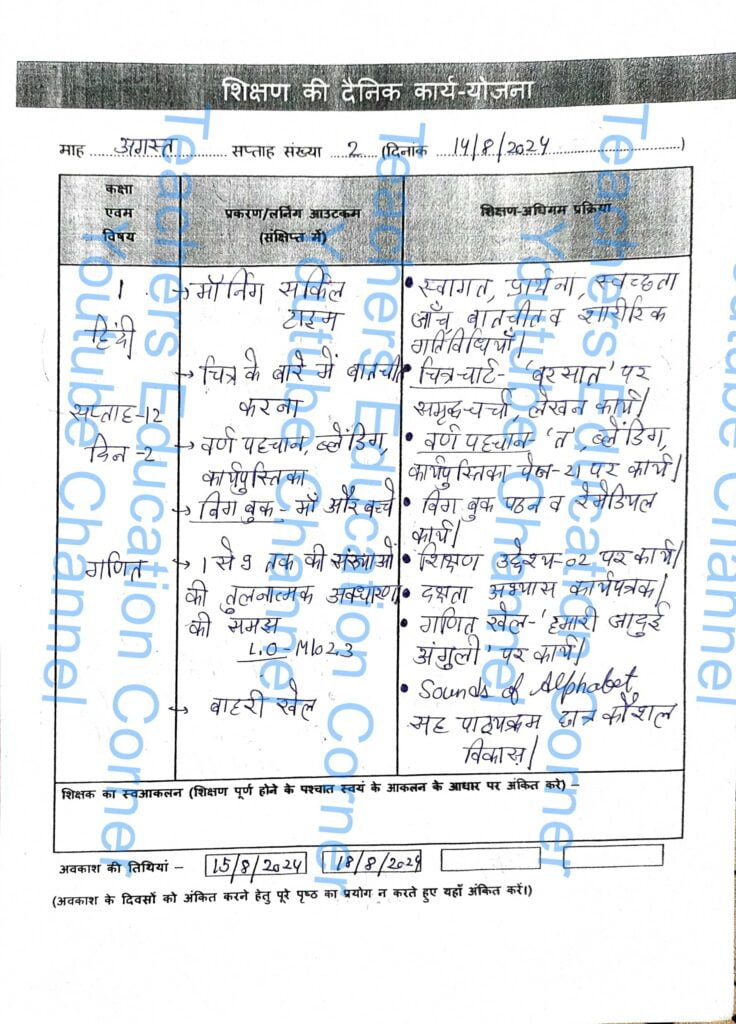 शिक्षण की दैनिक कार्य-योजना
माह ....अगस्त.... सप्ताह संख्या ..2.. (दिनांक ..14/8/2024..)
कक्षा
एवम
विषय
प्रकरण/लर्निंग आउटकम
(संक्षिप्त में)
शिक्षण-अधिगम प्रक्रिया
1
हिंदी
सप्ताह-12
दिन-2
गणित
→ मॉर्निंग सर्किल
टाइम
→ चित्र के बारे में बातचीत
करना
→ वर्ण पहचान, ब्लेंडिंग,
कार्यपुस्तिका
→ बिग बुक - माँ और बच्चे
→ 1 से 9 तक की संख्याओं
की तुलनात्मक अवधारणा
की समझ
L.O-M102.3
→ बाहरी खेल
• स्वागत, प्रार्थना, स्वच्छता
जाँच बातचीत व शारीरिक
गतिविधियाँ।
• चित्र चार्ट- 'बरसात' पर
समृद्ध-चर्चा, लेखन कार्य।
• वर्ण पहचान- 'त', ब्लेंडिंग,
कार्यपुस्तिका पेज-21 पर कार्य।
• बिग बुक पठन व रेमेडियल
कार्य।
• शिक्षण उद्देश्य-02 पर कार्य।
• दक्षता अभ्यास कार्यपत्रक।
• गणित खेल- 'हमारी जादुई
अंगुली' पर कार्य।
• Sounds of Alphabet,
सह पाठ्यक्रम छात्र कौशल
विकास।
शिक्षक का स्वआकलन (शिक्षण पूर्ण होने के पश्चात स्वयं के आकलन के आधार पर अंकित करे) –
अवकाश की तिथियां – 15/8/2024 18/8/2024
(अवकाश के दिवसों को अंकित करने हेतु पूरे पृष्ठ का प्रयोग न करते हुए यहाँ अंकित करें।)
Teachers Education Corner
Youtube Channel
Teachers Education Corner
Youtube Channel
Teachers Education Corner
Youtube Channel